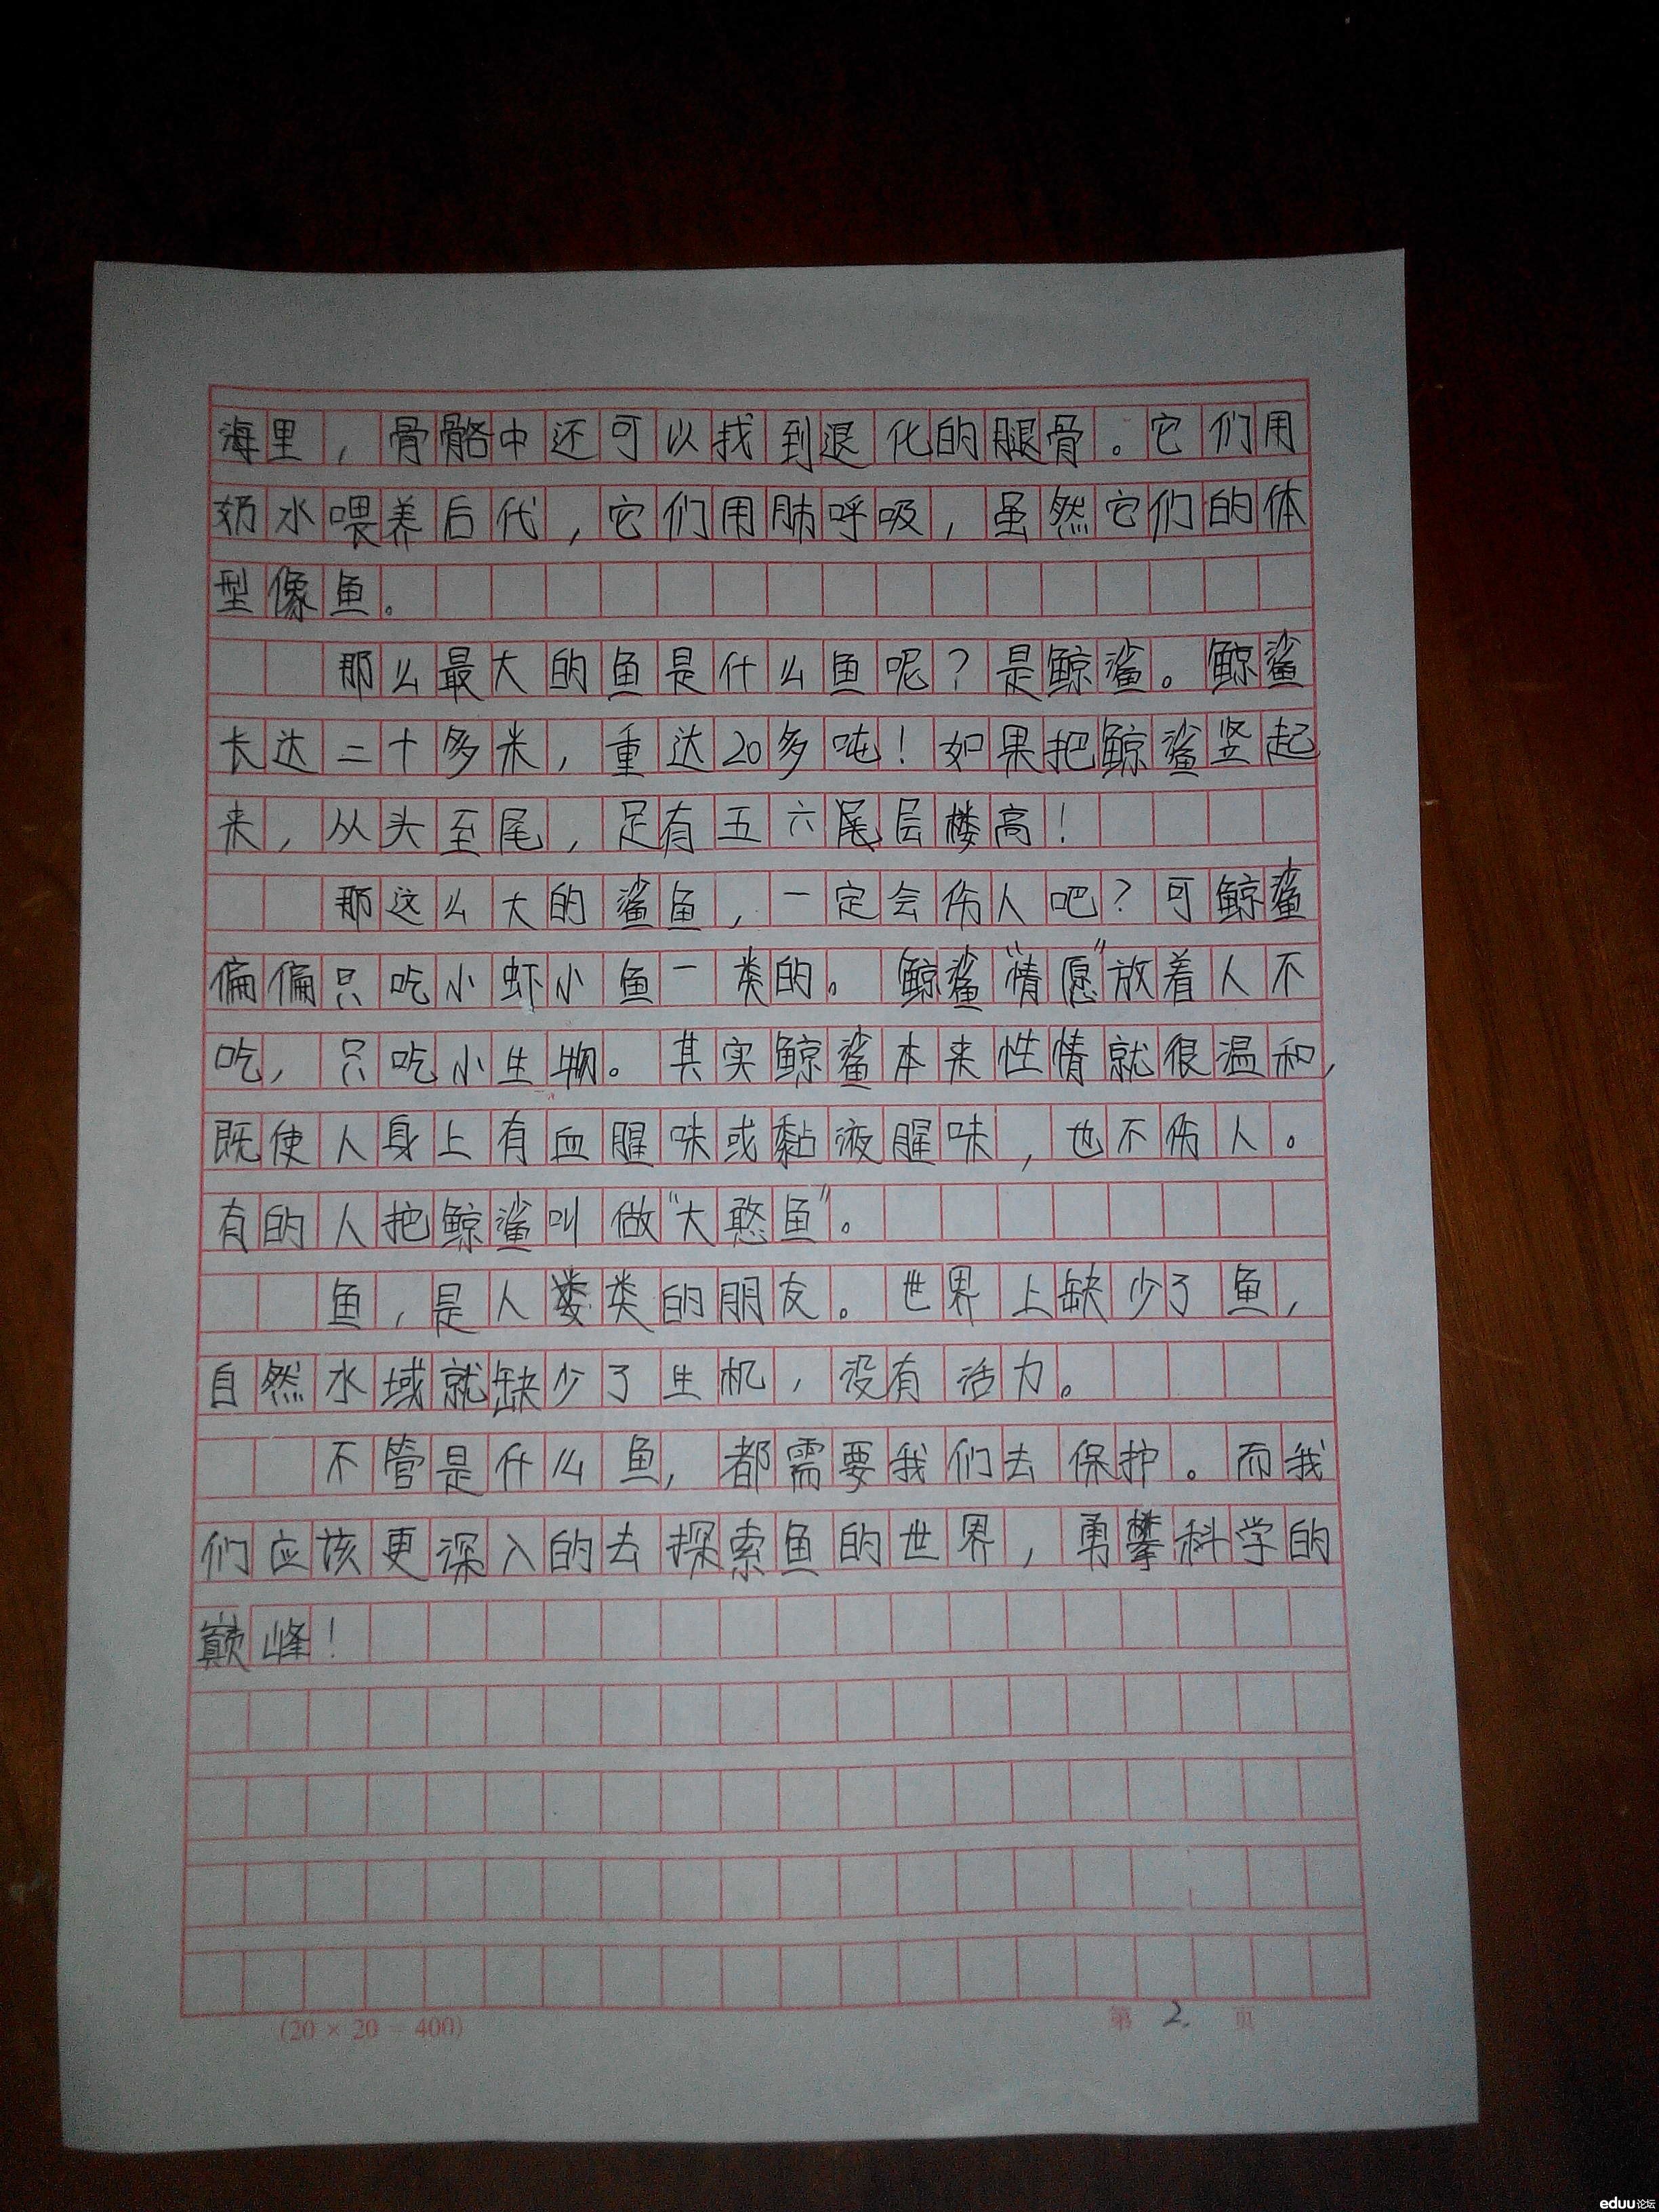 海里，骨骼中还可以找到退化的腿骨。它们用
奶水喂养后代，它们用肺呼吸，虽然它们的体
型像鱼。
那么最大的鱼是什么鱼呢？是鲸鲨。鲸鲨
长达二十多米，重达20多吨！如果把鲸鲨竖起
来，从头至尾，足有五六尾层楼高！
那这么大的鲨鱼，一定会伤人吧？可鲸鲨
偏偏只吃小虾小鱼一类的。鲸鲨“情愿”放着人不
吃，只吃小生物。其实鲸鲨本来性情就很温和，
既使人身上有血腥味或黏液腥味，也不伤人。
有的人把鲸鲨叫做“大憨鱼”。
鱼，是人类的朋友。世界上缺少了鱼，
自然水域就缺少了生机，没有活力。
不管是什么鱼，都需要我们去保护。而我
们应该更深入的去探索鱼的世界，勇攀科学的
巅峰！
(20 × 20 = 400)
第 2. 页
eduu论坛